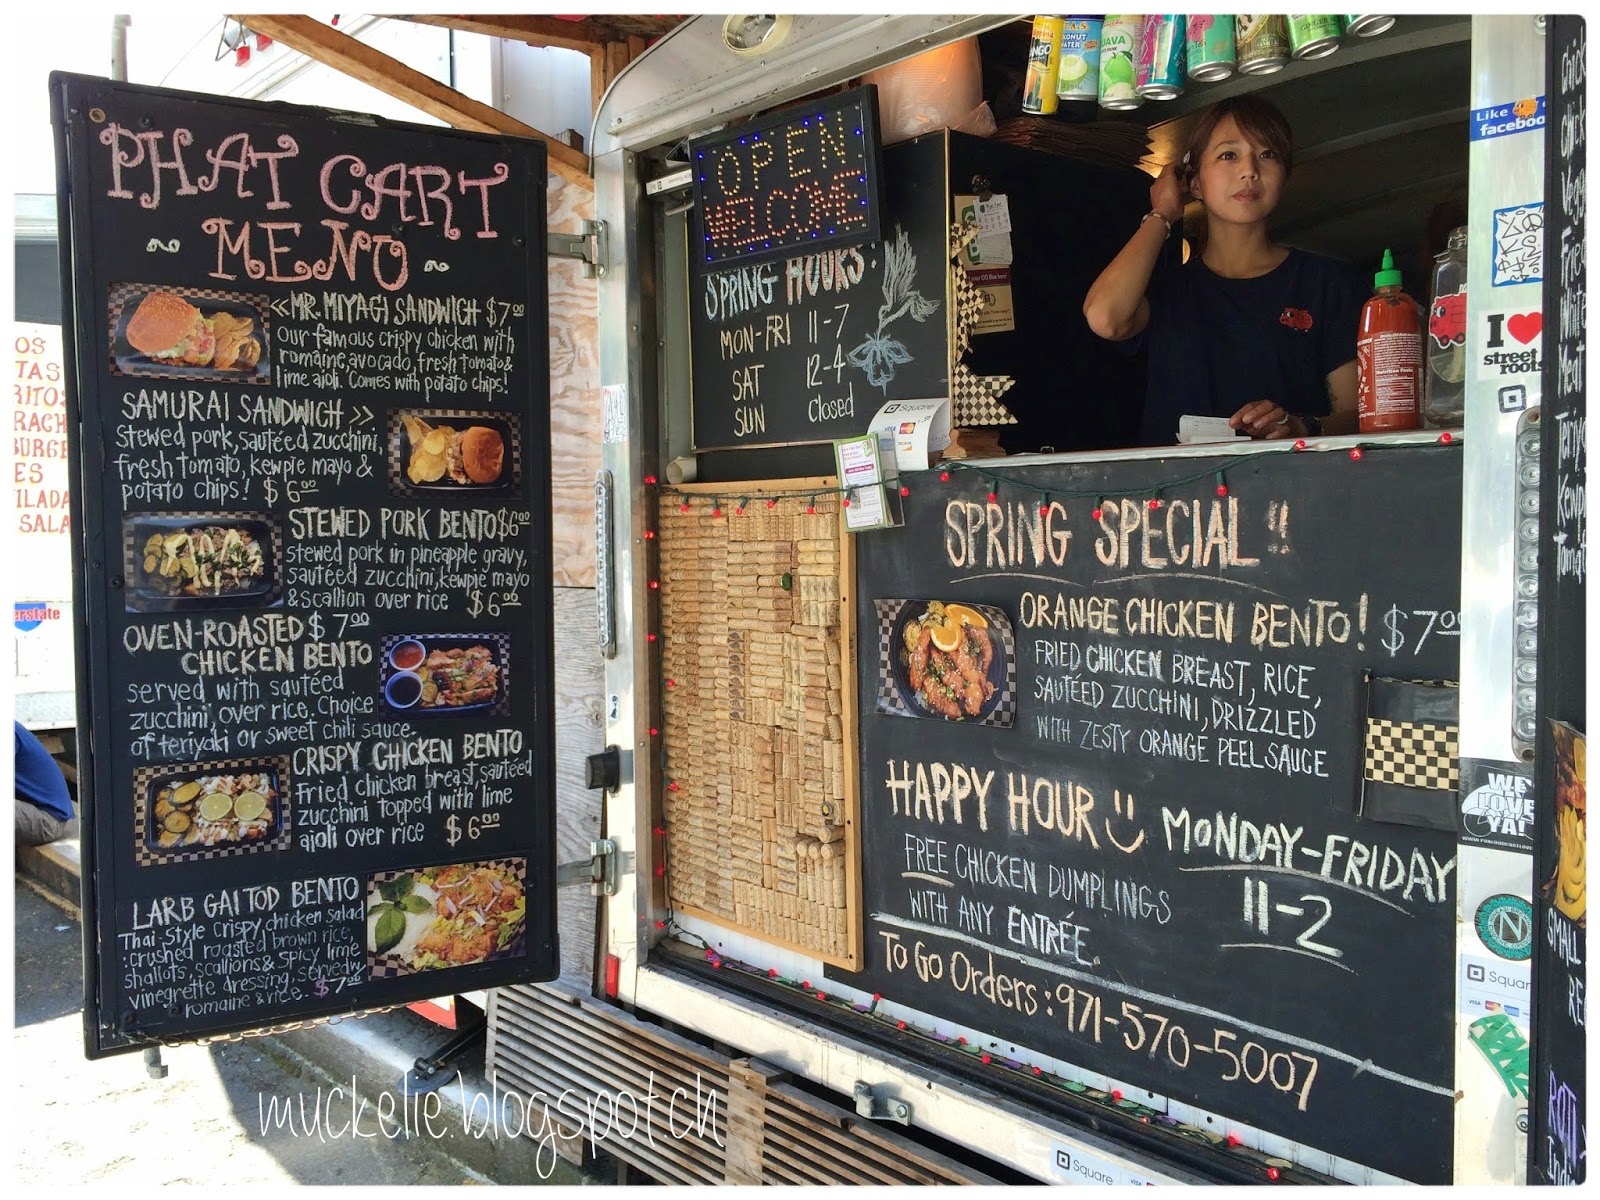 PHAT CART
~ MENU ~
<<MR. MIYAGI SANDWICH $7.00
our famous crispy chicken with
romaine, avocado, fresh tomato &
lime aioli. Comes with potato chips!
SAMURAI SANDWICH >>
Stewed pork, sautéed zucchini,
fresh tomato, kewpie mayo &
potato chips! $6.00
STEWED PORK BENTO $6.00
stewed pork in pineapple gravy,
sautéed zucchini, kewpie mayo
& scallion over rice $6.00
OVEN-ROASTED $7.00
CHICKEN BENTO
served with sautéed
zucchini, over rice. Choice
of teriyaki or sweet chili sauce.
CRISPY CHICKEN BENTO
Fried chicken breast, sautéed
zucchini topped with lime
aioli over rice $6.00
LARB GAI TOD BENTO
Thai style crispy chicken salad
crushed roasted brown rice,
shallots, scallions & spicy lime
vinegrette dressing, served w/
romaine & rice. $7.00
OPEN
WELCOME
SPRING HOURS:
MON-FRI 11-7
SAT 12-4
SUN Closed
Square
VISA
SPRING SPECIAL!!
ORANGE CHICKEN BENTO! $7.00
FRIED CHICKEN BREAST, RICE,
SAUTÉED ZUCCHINI, DRIZZLED
WITH ZESTY ORANGE PEEL SAUCE
HAPPY HOUR
MONDAY-FRIDAY
11-2
FREE CHICKEN DUMPLINGS
WITH ANY ENTRÉE.
To Go Orders: 971-570-5007
Like
facebook
I
street roots
WE
LOVE
YA!
N
Square
VISA
SMALL
Square
muckelie.blogspot.ch